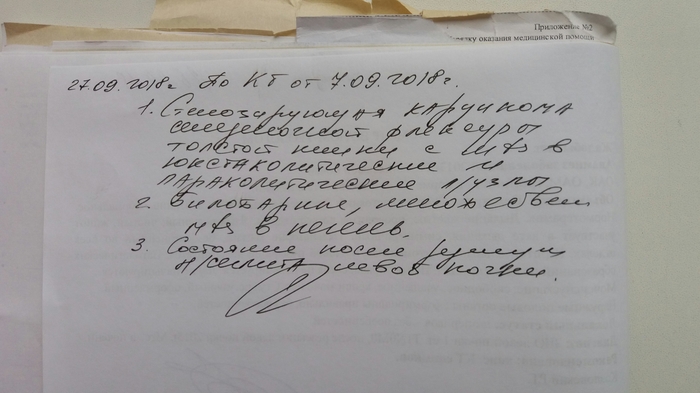 Приложение №2
рядку оказания медицинской помощи
27.09.2018г. По КТ от 7.09.2018г.
1. Стенозирующая карцинома
селезеночной флексуры
толстой кишки с mts в
юкстаколитические и
параколитические л/узлы
2. Билобарные, множествен
mts в печень.
3. Состояние после резекции
н/сегмента левой почки.